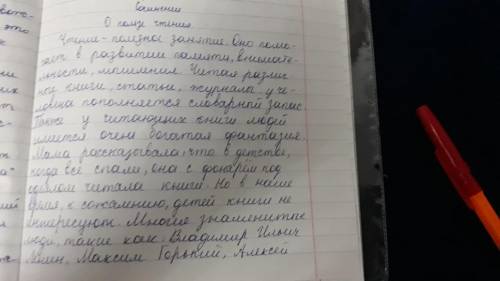 О пользе чтения
Чтение - полезное занятие. Оно помо-
гает в развитии памяти, внимате-
льности, мышления. Читая разли
ные книги, статьи, журналы у че-
ловека пополняется словарный запас.
Также у читающих книги людей
имеется очень богатая фантазия.
Мама рассказывала, что в детстве,
когда все спали, она с фонарём под
одеялом читала книги. Но в наше
время, к сожалению, детей книги не
интересуют. Многие знаменитые
люди, такие как: Владимир Ильич
Ленин, Максим Горький, Алексей